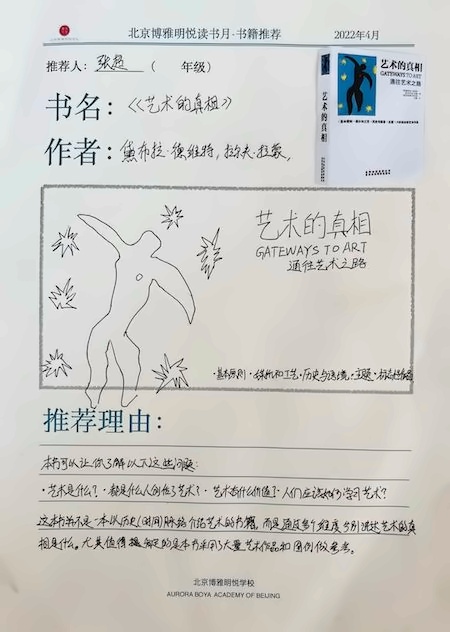 北京博雅明悦读书月·书籍推荐 2022年4月
推荐人：张超（ 年级）
书名：《艺术的真相》
作者：黛布拉·德维特，拉尔夫·拉蒙，
艺术的真相
GATEWAYS TO ART
通往艺术之路
艺术的真相
艺术的真相
GATEWAYS TO ART
通往艺术之路
·基本原则·媒材和工艺·历史与语境·主题·
推荐理由：
本书可以让你了解以下这些问题：
·艺术是什么？·都是什么人创作了艺术？·艺术有什么价值？·人们应该如何学习艺术？
这本书并不是一本以历史（时间）脉络介绍艺术的书籍，而是通过多个维度分别讲述艺术的真
相是什么。尤其值得提的是本书采用了大量艺术作品和图例做参考。
北京博雅明悦学校
AURORA BOYA ACADEMY OF BEIJING